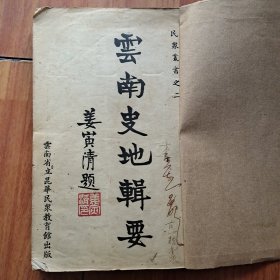 民眾叢書之二
雲南史地輯要
姜寅清題
雲南省立昆華民眾教育館出版